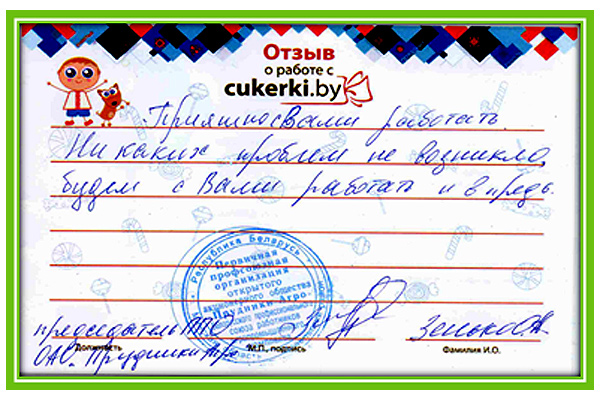 Отзыв
о работе с
cukerki.by
Приятно с Вами работать.
Никаких проблем не возникло,
будем с Вами работать и впредь.
Республика Беларусь
Первичная
профсоюзная
организация
открытого
акционерного общества
Прудники-Агро
союза работников
председатель ППО
Зенько О.А
Должность
М.П., подпись
Фамилия И.О.
ОАО "Прудники Агро